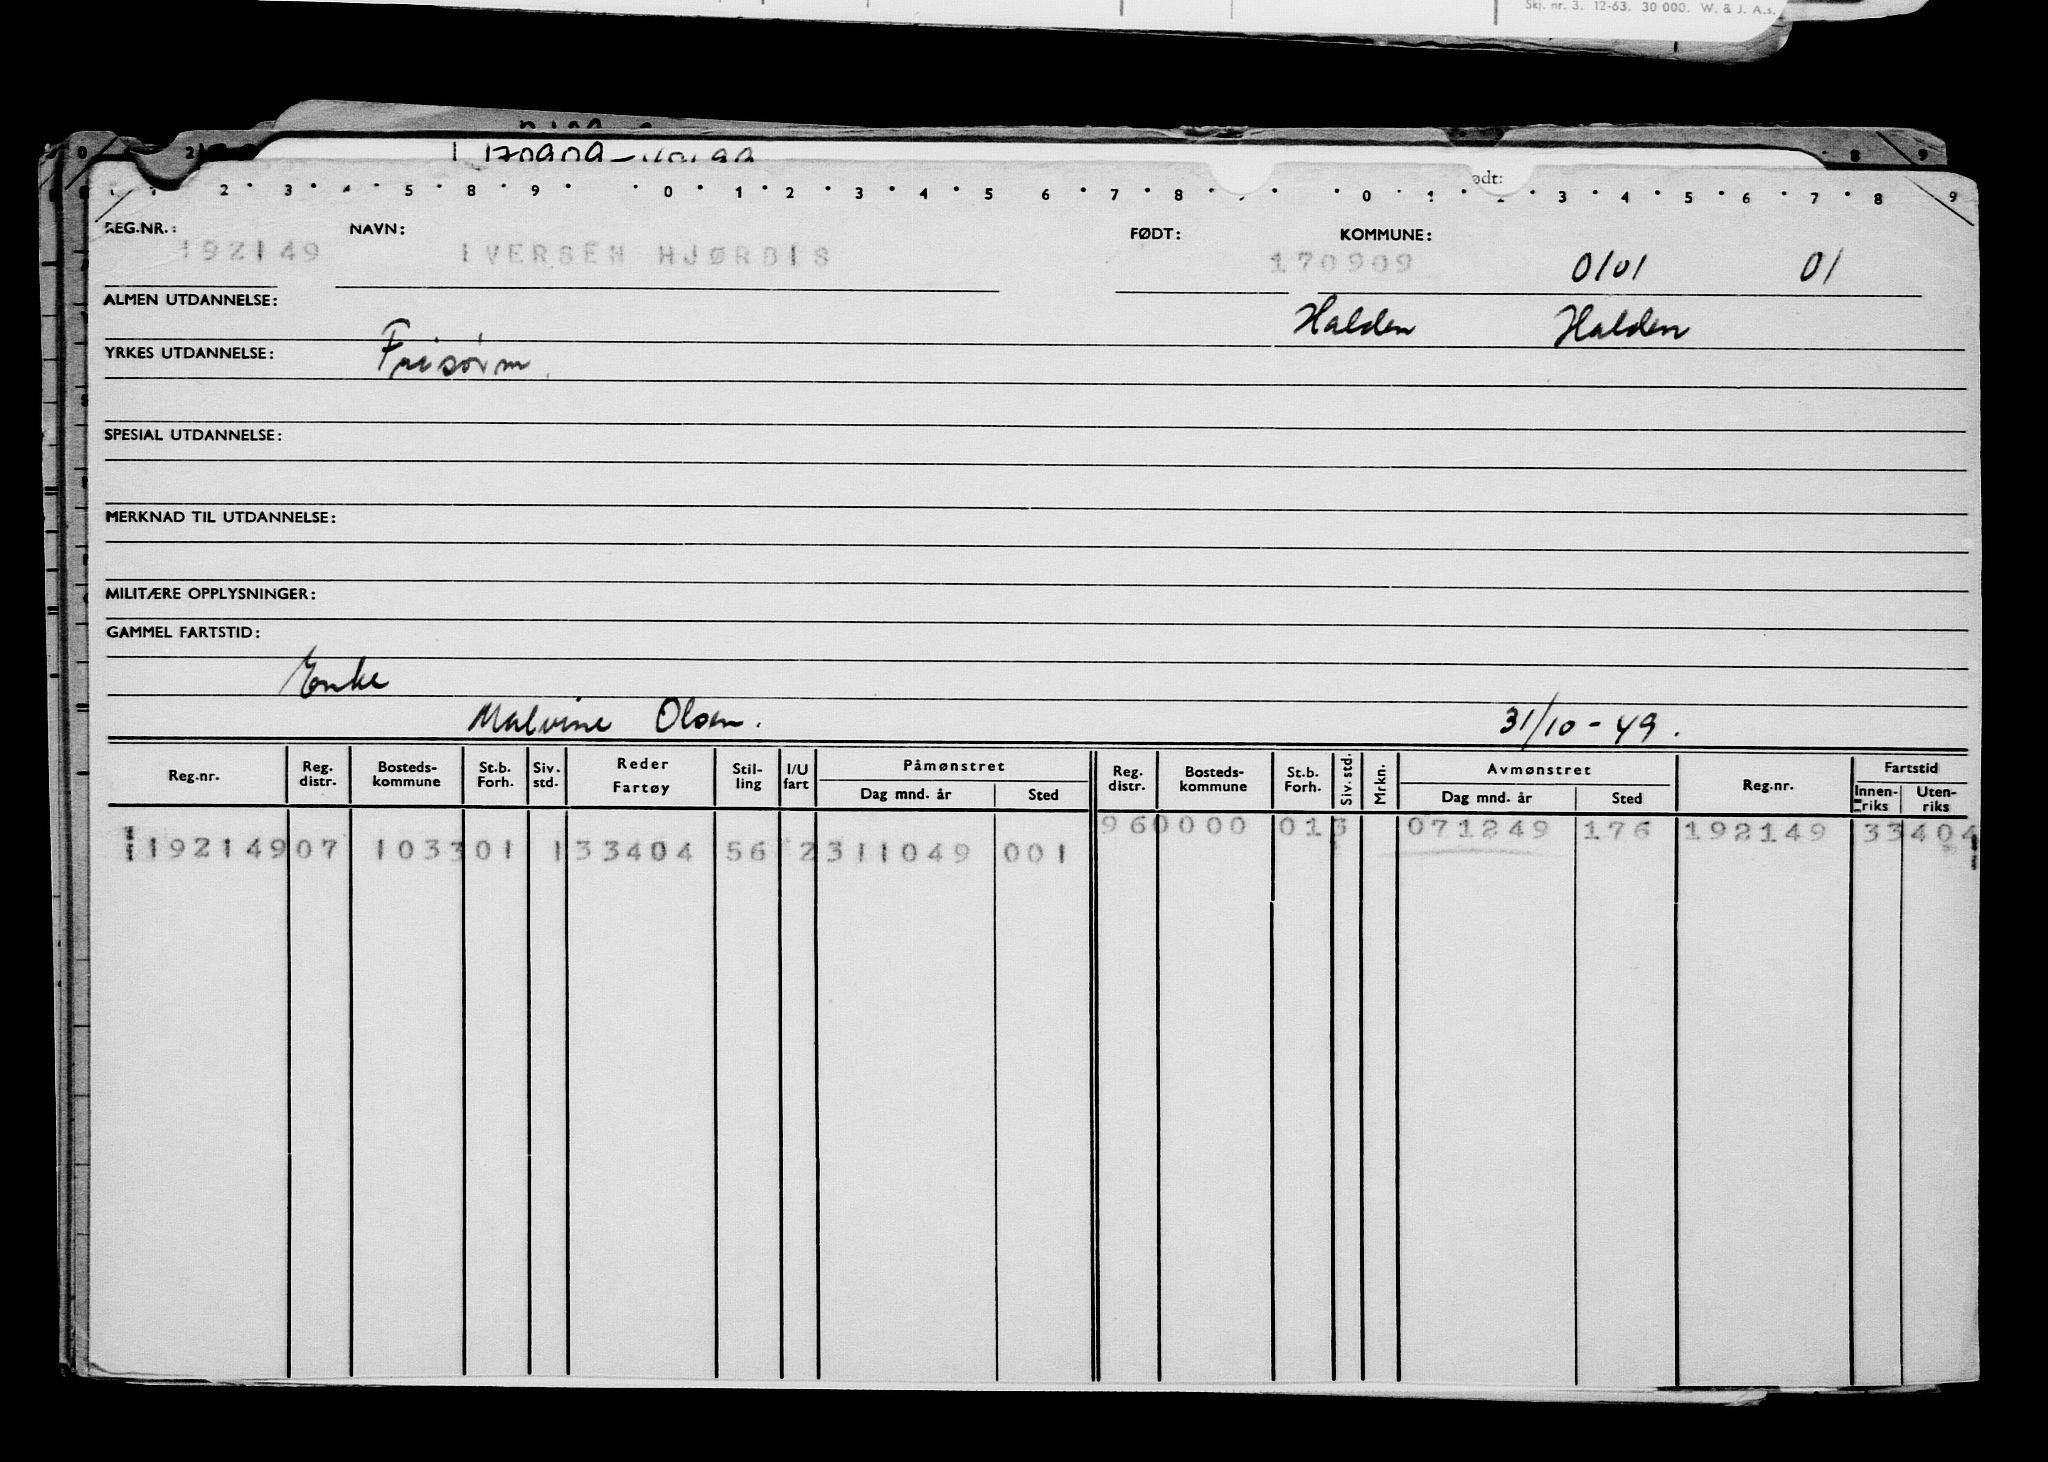 Skj. nr. 3. 12-63. 30 000. W. & J. A.s.
170909
ødt:
REG.NR.: NAVN: FØDT: KOMMUNE:
192149 IVERSEN HJØRDIS 170909 0101 01
ALMEN UTDANNELSE: Halden Halden
YRKES UTDANNELSE: Frisørin.
SPESIAL UTDANNELSE:
MERKNAD TIL UTDANNELSE:
MILITÆRE OPPLYSNINGER:
GAMMEL FARTSTID:
Enke
Malvine Olsen. 31/10-49.
Reg.nr. Reg. distr. Bosteds- kommune St.b. Forh. Siv. std. Reder Fartøy Stil- ling I/U fart Påmønstret Dag mnd. år Sted Reg. distr. Bosteds- kommune St.b. Forh. Siv. std. Mrkn. Avmønstret Dag mnd. år Sted Reg.nr. Fartstid Innen- riks Uten- riks
192149 07 1033 01 1 33404 56 2 311049 001 96 0000 01 3 071249 176 192149 33404